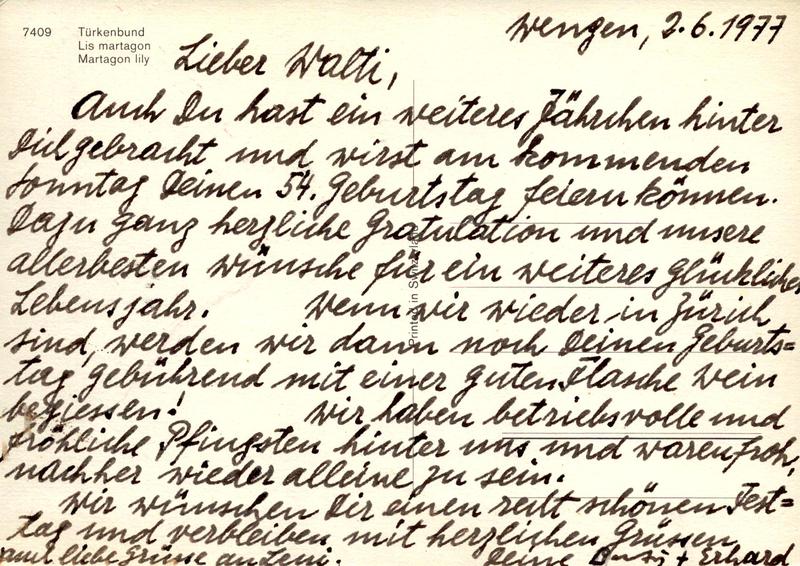 7409 Türkenbund
Lis martagon
Martagon lily
Wengen, 2.6.1977
Lieber Walti,
Auch Du hast ein weiteres Jährchen hinter
Dich gebracht und wirst am kommenden
Sonntag Deinen 54. Geburtstag feiern können.
Dazu ganz herzliche Gratulation und unsere
allerbesten Wünsche für ein weiteres glückliches
Lebensjahr. Wenn wir wieder in Zürich
sind, werden wir dann noch Deinen Geburts=
tag gebührend mit einer guten Flasche Wein
begiessen! Wir haben betriebsvolle und
fröhliche Pfingsten hinter uns und waren froh,
nachher wieder alleine zu sein.
Wir wünschen Dir einen recht schönen Fest=
tag und verbleiben mit herzlichen Grüssen
auch liebe Grüsse an Leni. Deine + Erhard
Printed in Switzerland